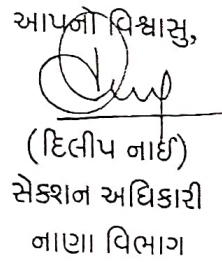 આપનો વિશ્વાસુ,
(દિલીપ નાઈ)
સેક્શન અધિકારી
નાણા વિભાગ